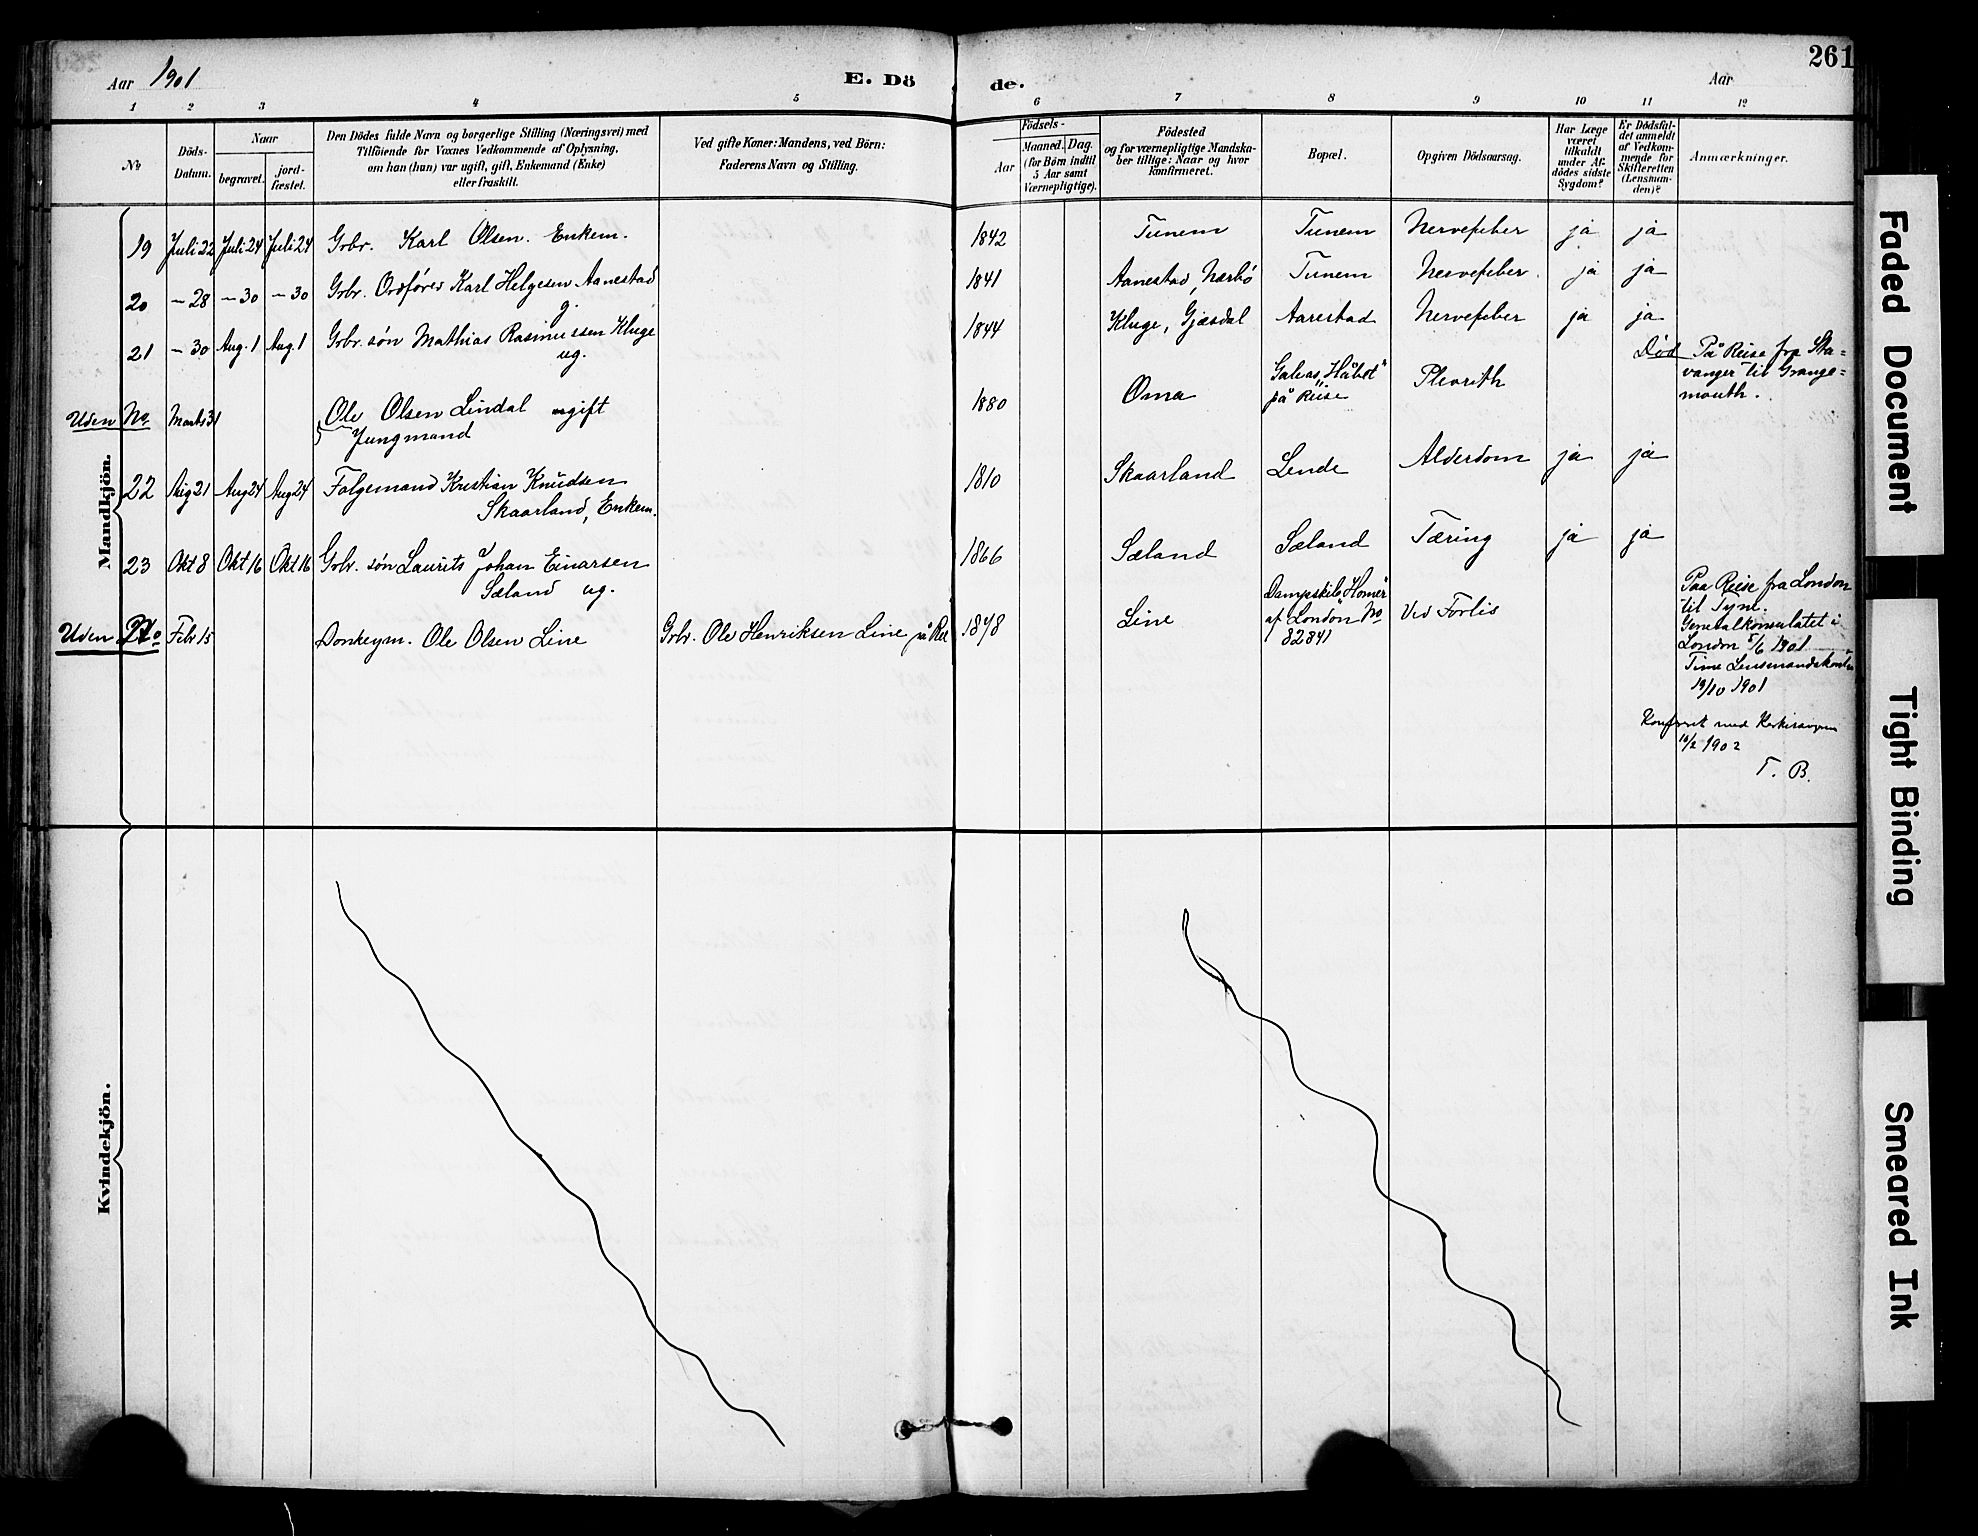 261
Aar 1901 E. Dö de. Aar
1 2 3 4 5 6 7 8 9 10 11 12
No
Döds-
Datum.
Naar
begravet.
jord-
fæstet.
Den Dödes fulde Navn og borgerlige Stilling (Næringsvei) med
Tilföiende for Voxnes Vedkommende af Oplysning,
om han (hun) var ugift, gift, Enkemand (Enke)
eller fraskilt.
Ved gifte Koner: Mandens, ved Börn:
Faderens Navn og Stilling.
Födsels-
Aar
Maaned. Dag.
(for Börn indtil
5 Aar samt
Værnepligtige).
Födested
og for værnepligtige Mandska-
ber tillige: Naar og hvor
konfirmeret.
Bopæl.
Opgiven Dödsaarsag.
Har Læge
været
tilkaldt
under Af-
dödes sidste
Sygdom?
Er Dödsfal-
det anmeldt
af Vedkom-
mende for
Skifteretten
(Lensman-
den)?
Anmærkninger.
Mandkjön.
19 Juli 22 Juli 24 Juli 24 Grbr. Karl Olsen. Enkem. 1842 Tunem Tunem Nervefeber ja ja
20 – 28 – 30 – 30 Grbr. Ordförer Karl Helgesen Aanestad
g. 1841 Aanestad, Nærbö Tunem Nervefeber. ja ja
21 – 30 Aug. 1 Aug. 1 Grbr. sön Mathias Rasmussen Kluge
ug. 1844 Kluge, Gjæsdal Aarestad Nervefeber ja ja
Uden No. Marts 31 Ole Olsen Lindal ugift
Jungmand 1880 Oma Galeas "Håbet"
på Reise Plevrith Död På Reise fra Sta=
vanger til Grange=
mouth.
22 Aug 21 Aug 24 Aug 24 Folgemand Kristian Knudsen
Skaarland, Enkem. 1810 Skaarland Lende Alderdom ja ja
23 Okt 8 Okt 16 Okt 16 Grbr. sön Laurits Johan Einarsen
Sæland ug. 1866 Sæland Sæland Tæring ja ja
Uden No. Febr 15 Donkeym. Ole Olsen Line Grbr. Ole Henriksen Line 1878 Line Dampskib "Homer"
af London No
82841 Ved Forlis Paa Reise fra London
til Tyne.
Generalkonsulatet i
London 5/6 1901
Time Lensmandskontor
19/10 1901
Konfereret med
1902
T. B.
Kvindekjön.
Faded Document
Tight Binding
Smeared Ink